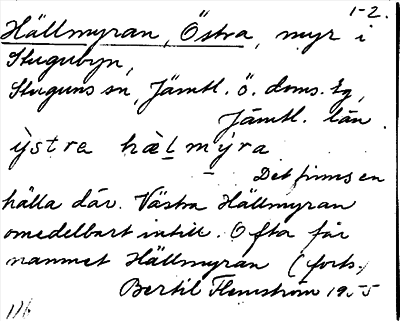 1-2.
Hällmyran, Östra, myr i
Stugubyn,
Stuguns sn, Jämtl. ö. doms. tg,
Jämtl. län.
ỳstra hæ̀l mýra
Det finns en
hälla där. Västra Hällmyran
omedelbart intill. Ofta får
namnet Hällmyran (forts.)
Bertil Flemström 1955